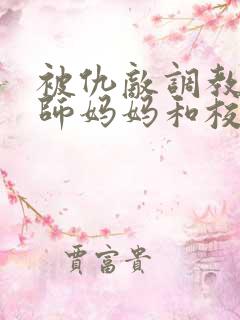 被仇敵調教
師媽媽和校
賈富貴